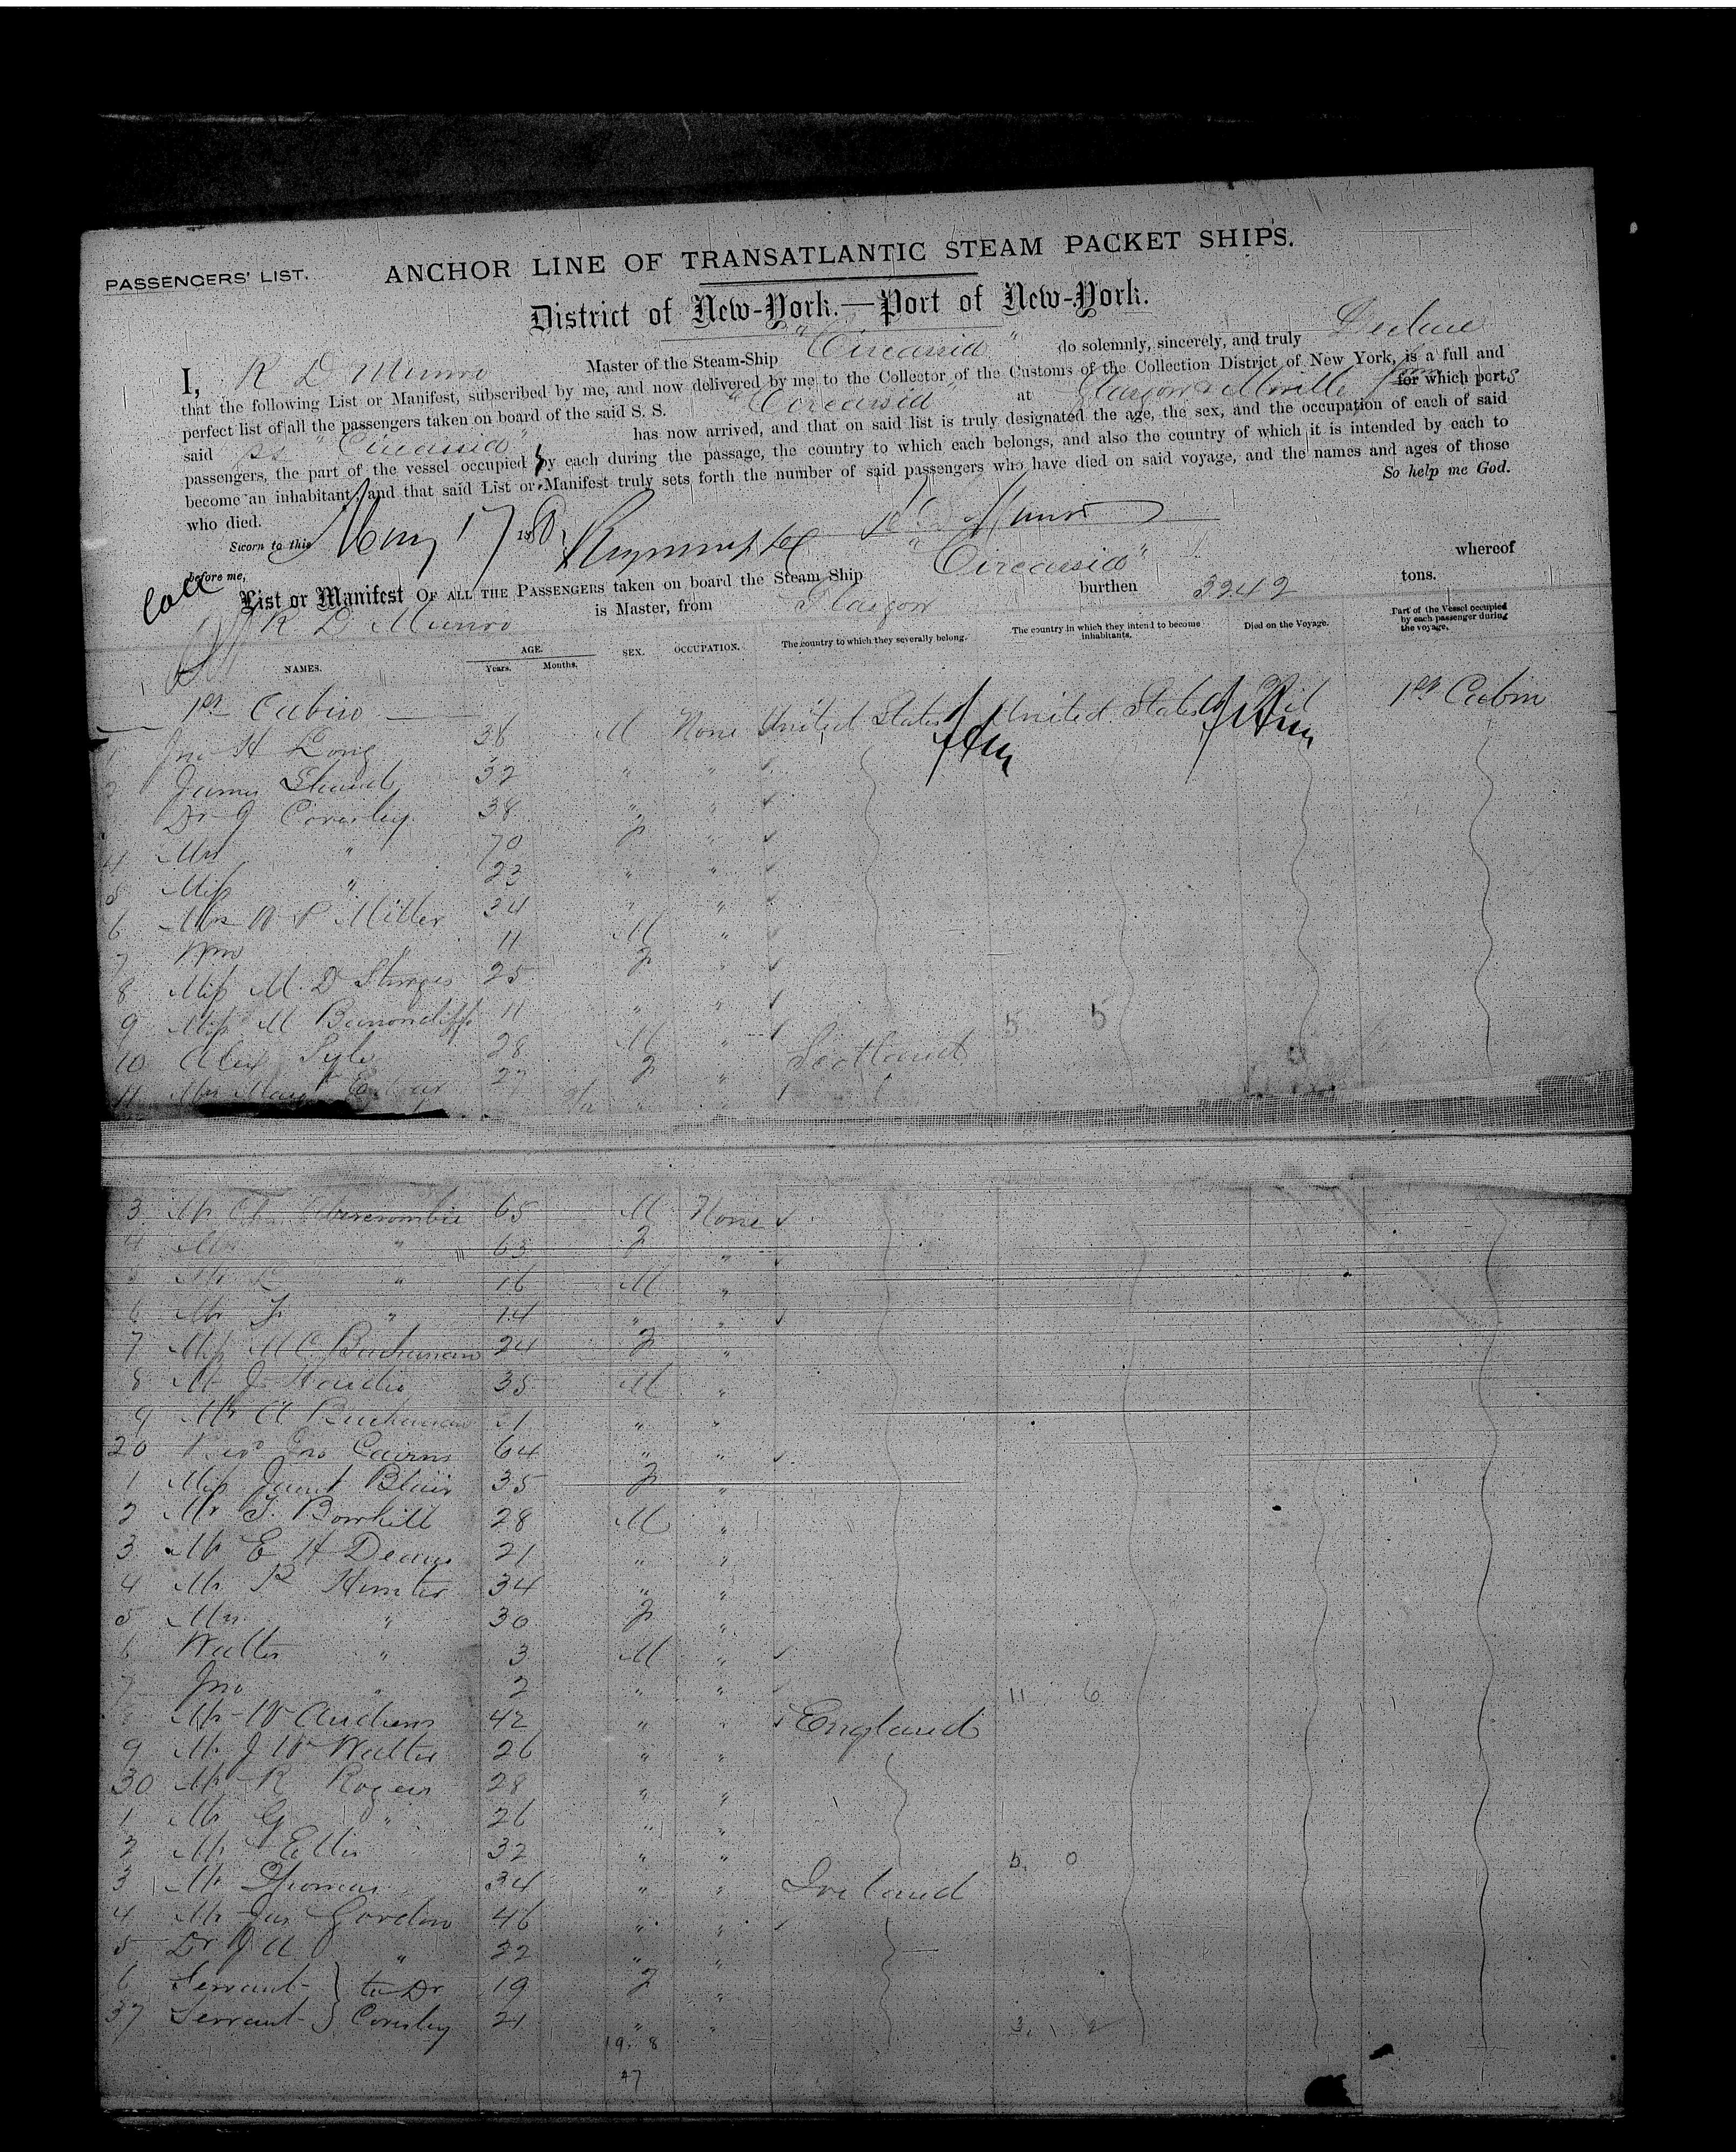 PASSENGERS' LIST.
ANCHOR LINE OF TRANSATLANTIC STEAM PACKET SHIPS.
District of New-York.—Port of New-York.
I, R D Munro Master of the Steam-Ship "Circassia" do solemnly, sincerely, and truly Declare
that the following List or Manifest, subscribed by me, and now delivered by me to the Collector of the Customs of the Collection District of New York, is a full and
perfect list of all the passengers taken on board of the said S. S. "Circassia" at Glasgow & Moville from for which ports
said ss "Circassia" has now arrived, and that on said list is truly designated the age, the sex, and the occupation of each of said
passengers, the part of the vessel occupied by each during the passage, the country to which each belongs, and also the country of which it is intended by each to
become an inhabitant; and that said List or Manifest truly sets forth the number of said passengers who have died on said voyage, and the names and ages of those
who died. So help me God.
Sworn to this May 17 188 R D Munro
before me,
List or Manifest OF ALL THE PASSENGERS taken on board the Steam Ship "Circassia" whereof
R D Munro is Master, from Glasgow burthen 3242 tons.
NAMES. AGE. Years. Months. SEX. OCCUPATION. The country to which they severally belong. The country in which they intend to become inhabitants. Died on the Voyage. Part of the Vessel occupied by each passenger during the voyage.
1st Cabin
1 Jno H Long 38 M None United States United States Nil 1st Cabin
James 32 " "
Dr J Coverley 38 " "
4 Mrs " 70 F "
5 Miss " 23 " "
6 Mrs W P Miller 34 " "
7 Wm " 11 M "
8 Miss M. D Sturges 25 F "
9 Miss M 11 " "
10 Alex 28 M " Scotland 5 5
11 Mrs 27 F "
3 Mr Abercrombie 65 M None
4 Mrs " 63 F "
Mr " 16 M "
6 Mr " 14 " "
7 Miss M C Buchanan 24 F "
8 Mr J 35 M "
9 Mr A Buchanan 21 " "
20 Revd Jno Cairns 64 " "
1 Miss Janet Blair 35 F "
2 Mr T. Bowhill 28 M "
3 Mr E H 21 " "
4 Mr R Hunter 34 " "
5 Mrs " 30 F "
6 Walter " 3 M "
7 Jno " 2 " " 11 6
Mr W Andrews 42 " " England
9 Mr J W Walter 26 " "
30 Mr R Rogers 28 " "
1 Mr G " 26 " "
2 Mr Ellis 32 " " 5 0
3 Mr Thomas 34 " " Ireland
4 Mr Jas Gordon 46 " "
5 Dr J A " 22 " "
6 Servant } to Dr 19 F "
37 Servant } Coverley 21 " " 3 2
19 8